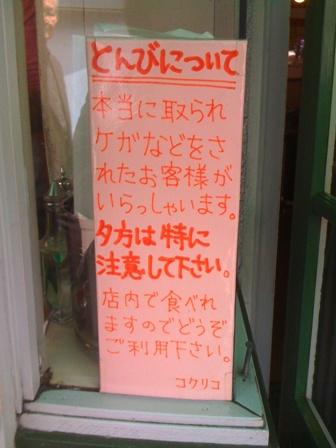 とんびについて
本当に取られ
ケガなどをさ
れたお客様が
いらっしゃいます。
夕方は特に
注意して下さい。
店内で食べれ
ますのでどうぞ
ご利用下さい。
コクリコ